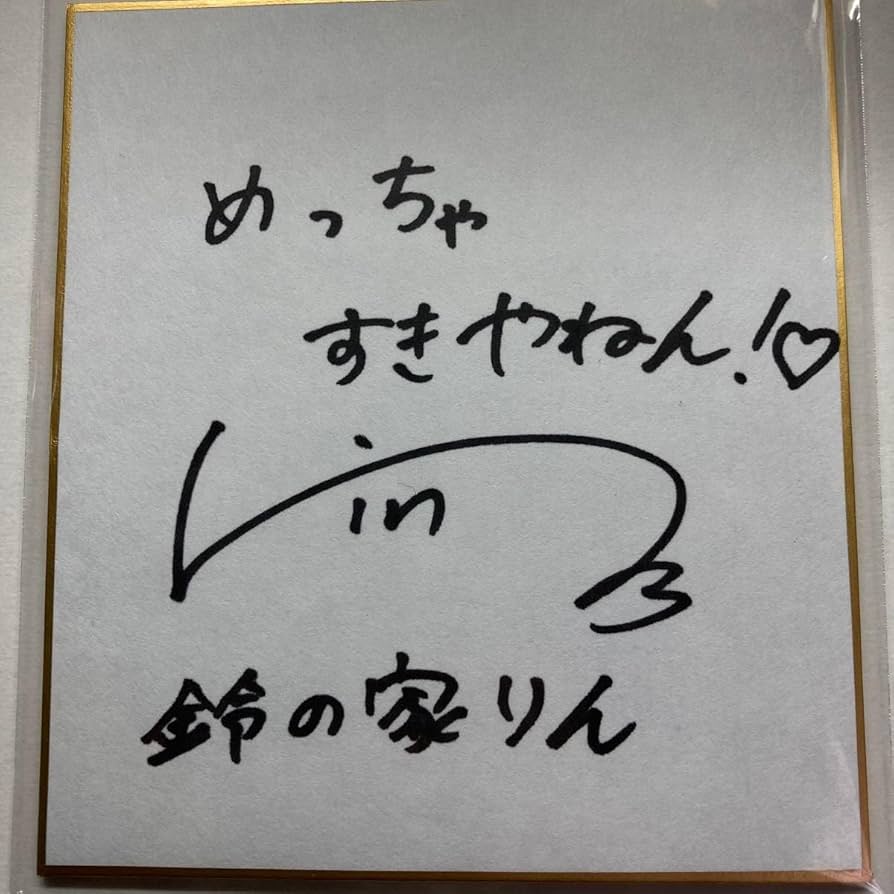 めっちゃ
すきやねん!♡
rin
鈴の家りん